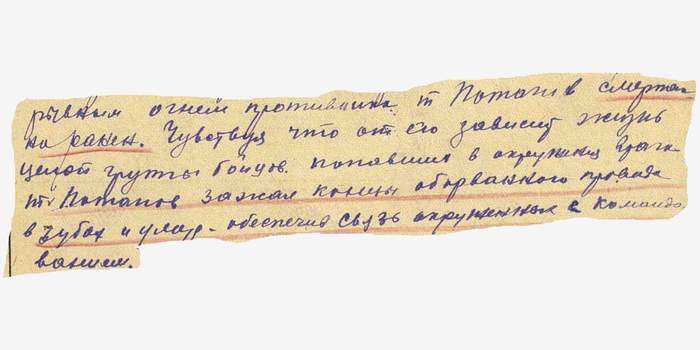 рывным огнем противника. т Потапов смертель
но ранен. Чувствуя что от его зависит жизнь
целой группы бойцов. попавших в окружения врага
т. Потапов зажал концы оборванного провода
в зубах и умер. обеспечив связь окруженных с командо
ванием.